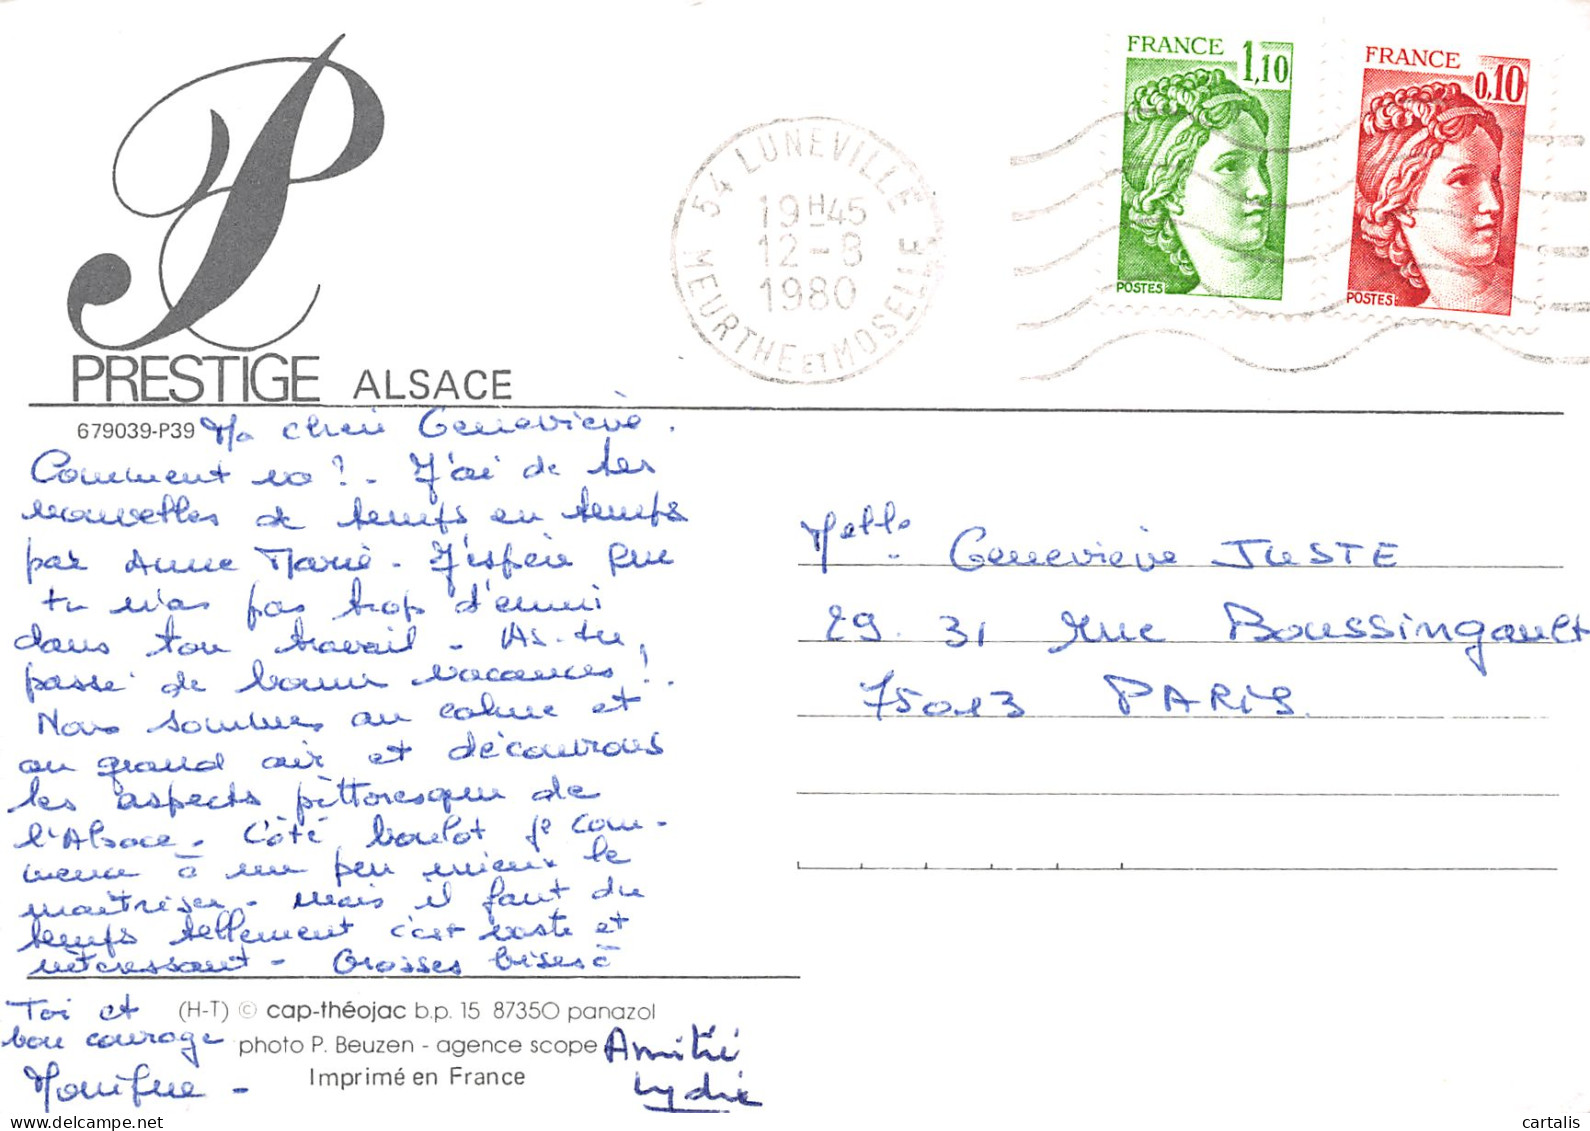 FRANCE 1,10
POSTES
FRANCE 0,10
POSTES
54 LUNEVILLE
19H45
12-8
1980
MEURTHE ET MOSELLE
PRESTIGE ALSACE
679039-P39
Ma chère Geneviève.
Comment va ?. J'ai de tes
nouvelles de temps en temps
par Anne Marie. J'espère que
tu n'as pas trop d'ennui
dans ton travail. As-tu
passé de bonnes vacances !.
Nous sommes au calme et
au grand air et découvrons
les aspects pittoresques de
l'Alsace. Côté boulot je com-
mence à un peu mieux le
maîtriser. Mais il faut du
temps tellement c'est vaste et
intéressant - Grosses bises à
Toi et
bon courage
Monique -
Amitié
Lydie
Melle. Geneviève JUSTE
29. 31 rue Boussingault
75013 PARIS.
(H-T) © cap-théojac b.p. 15 87350 panazol
photo P. Beuzen - agence scope
Imprimé en France
cartalis
delcampe.net